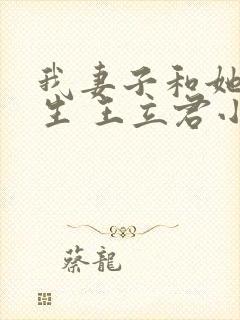 我妻子和她
生 王立君小
蔡龍